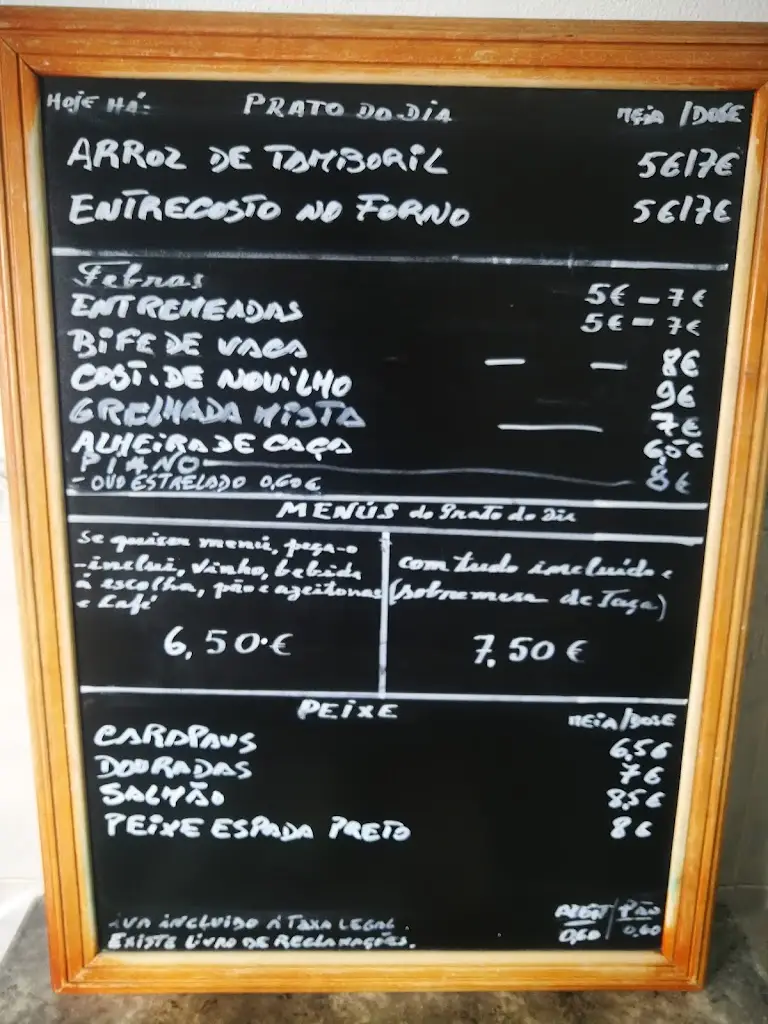 HOJE HÁ: PRATO DO DIA MEIA /DOSE
ARROZ DE TAMBORIL 5€/7€
ENTRECOSTO NO FORNO 5€/7€
Febras 5€ - 7€
ENTREMEADAS 5€ - 7€
BIFE DE VACA — — 8€
COST. DE NOVILHO 9€
GRELHADA MISTA — 7€
ALHEIRA DE CAÇA 6,5€
PIANO — 8€
- OVO ESTRELADO 0,60€
MENÚS do Prato do dia
Se quiser menú, peça-o
-inclui, vinho, bebida
á escolha, pão e azeitonas
e Café
6,50.€
com tudo incluído e
(sobremesa de Taça)
7,50 €
PEIXE MEIA/DOSE
CARAPAUS 6,5€
DOURADAS 7€
SALMÃO 8,5€
PEIXE ESPADA PRETO 8€
IVA INCLUIDO Á TAXA LEGAL.
EXISTE LIVRO DE RECLAMAÇÕES.
AZEIT / PÃO
0,60 0,60